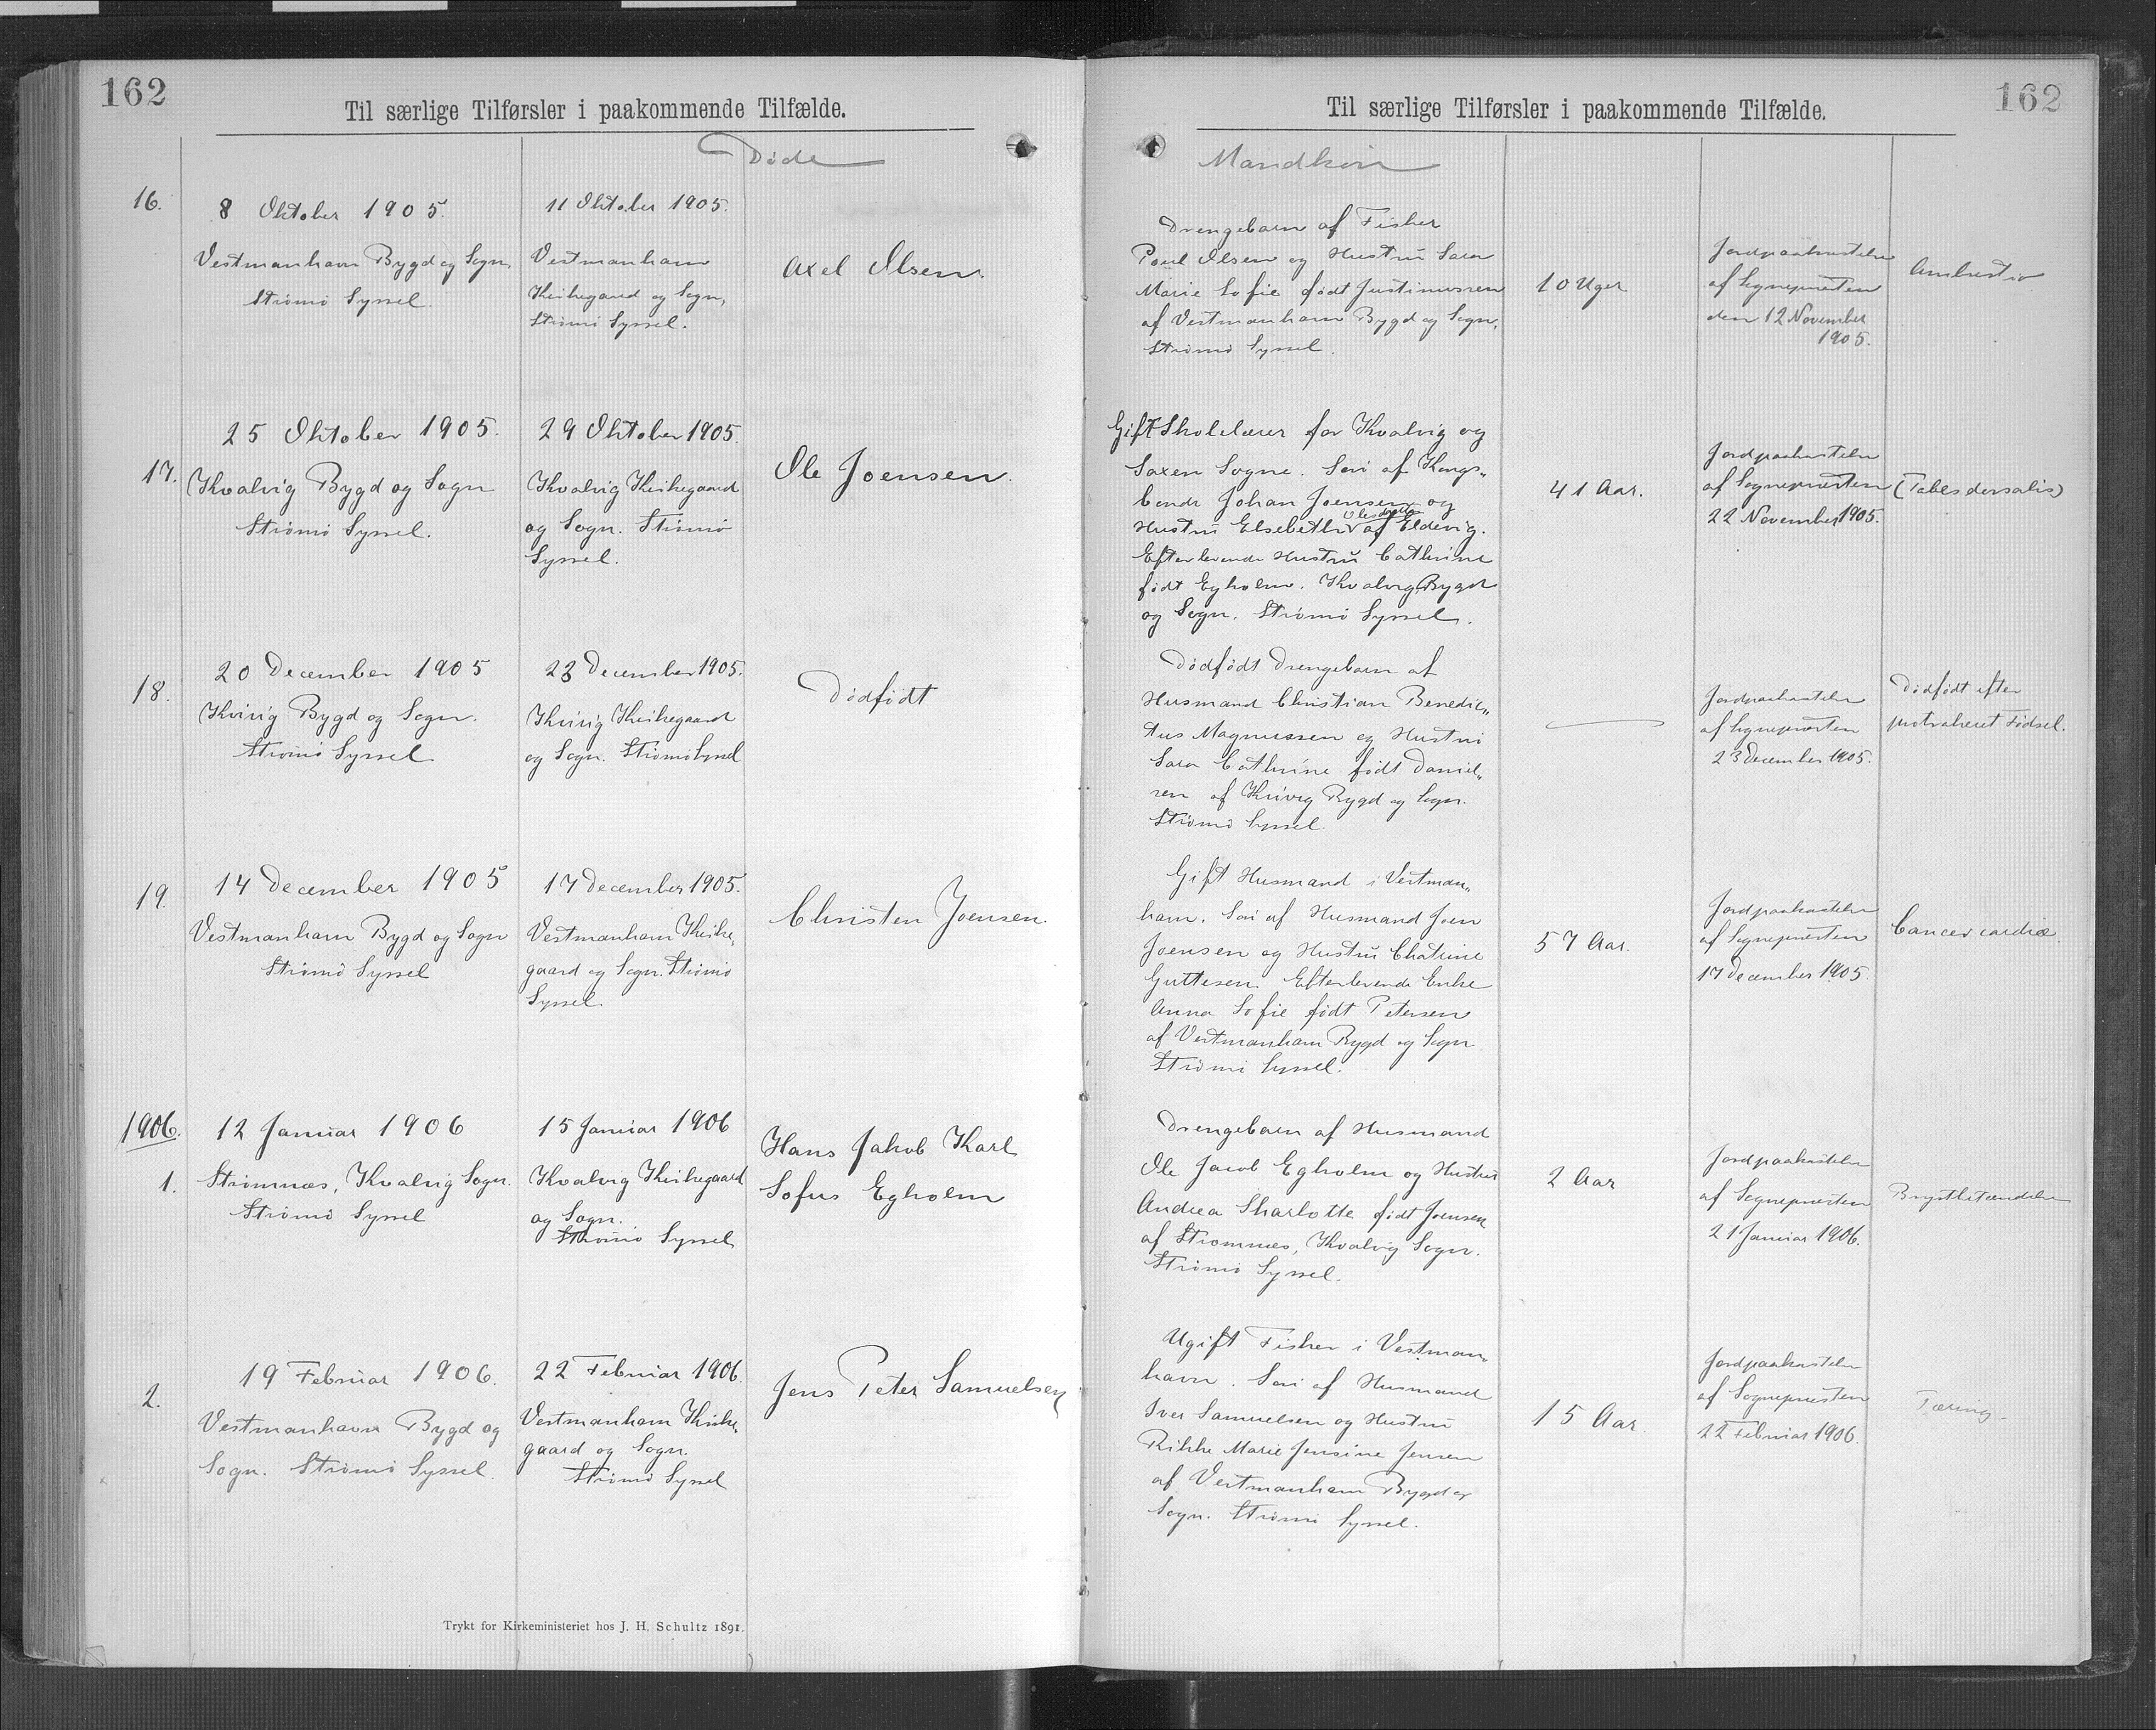 162
Til særlige Tilførsler i paakommende Tilfælde.
Døde
16.
8 Oktober 1905.
Vestmanhavn Bygd og Sogn,
Strømø Syssel.
11 Oktober 1905.
Vestmanhavn
Kirkegaard og Sogn,
Strømø Syssel.
Axel Olsen.
17.
25 Oktober 1905.
Kvalvig Bygd og Sogn
Strømø Syssel.
29 Oktober 1905.
Kvalvig Kirkegaard
og Sogn. Strømø
Syssel.
Ole Joensen.
18.
20 December 1905
Kvivig Bygd og Sogn.
Strømø Syssel.
23 December 1905.
Kvivig Kirkegaard
og Sogn. Strømø Syssel
Dødfødt
19.
14 December 1905
Vestmanhavn Bygd og Sogn
Strømø Syssel
17 December 1905.
Vestmanhavn Kirke„
gaard og Sogn. Strømø
Syssel.
Christen Joensen.
1906.
1.
12 Januar 1906
Strømnæs, Kvalvig Sogn.
Strømø Syssel
15 Januar 1906
Kvalvig Kirkegaard
og Sogn.
Strømø Syssel
Hans Jakob Karl
Sofus Egholm
2.
19 Februar 1906.
Vestmanhavn Bygd og
Sogn. Strømø Syssel.
22 Februar 1906.
Vestmanhavn Kirke„
gaard og Sogn.
Strømø Syssel
Jens Peter Samuelsen
Trykt for Kirkeministeriet hos J. H. Schultz 1891.
162
Til særlige Tilførsler i paakommende Tilfælde.
Mandkøn
Drengebarn af Fisker
Poul Olsen og Hustru Sara
Marie Sofie født Justinussen
af Vestmanhavn Bygd og Sogn,
Strømø Syssel.
10 Uger
Jordpaakastelse
af Sognepræsten
den 12 November
1905.
Gift Skolelærer for Kvalvig og
Saxen Sogne. Søn af Kongs„
bonde Johan Joensen og
Olesdatter
Hustru Elsebeth af Eldevig.
Efterlevende Hustru Cathrine
født Egholm. Kvalvig Bygd
og Sogn. Strømø Syssel.
41 Aar.
Jordpaakastelse
af Sognepræsten
22 November 1905.
(Tabes dorsalis)
Dødfødt Drengebarn af
Husmand Christian Benedic„
tus Magnussen og Hustru
Sara Cathrine født Daniel„
sen af Kvivig Bygd og Sogn.
Strømø Syssel.
Jordpaakastelse
af Sognepræsten
23 December 1905.
Dødfødt efter
protraheret Fødsel.
Gift Husmand i Vestman„
havn. Søn af Husmand Joen
Joensen og Hustru Chatrine
Guttesen. Efterlevende Enke
Anna Sofie født Petersen
af Vestmanhavn Bygd og Sogn
Strømø Syssel.
57 Aar.
Jordpaakastelse
af Sognepræsten
17 December 1905.
Cancer cardiæ.
Drengebarn af Husmand
Ole Jacob Egholm og Hustru
Andrea Sharlotte født Joensen
af Strømnæs, Kvalvig Sogn.
Strømø Syssel.
2 Aar
Jordpaakastelse
af Sognepræsten
21 Januar 1906.
Brystbetændelse
Ugift Fisker i Vestman„
havn. Søn af Husmand
Iver Samuelsen og Hustru
Rikke Marie Jensine Jensen
af Vestmanhavn Bygd og
Sogn. Strømø Syssel.
15 Aar.
Jordpaakastelse
af Sognepræsten
22 Februar 1906.
Tæring.